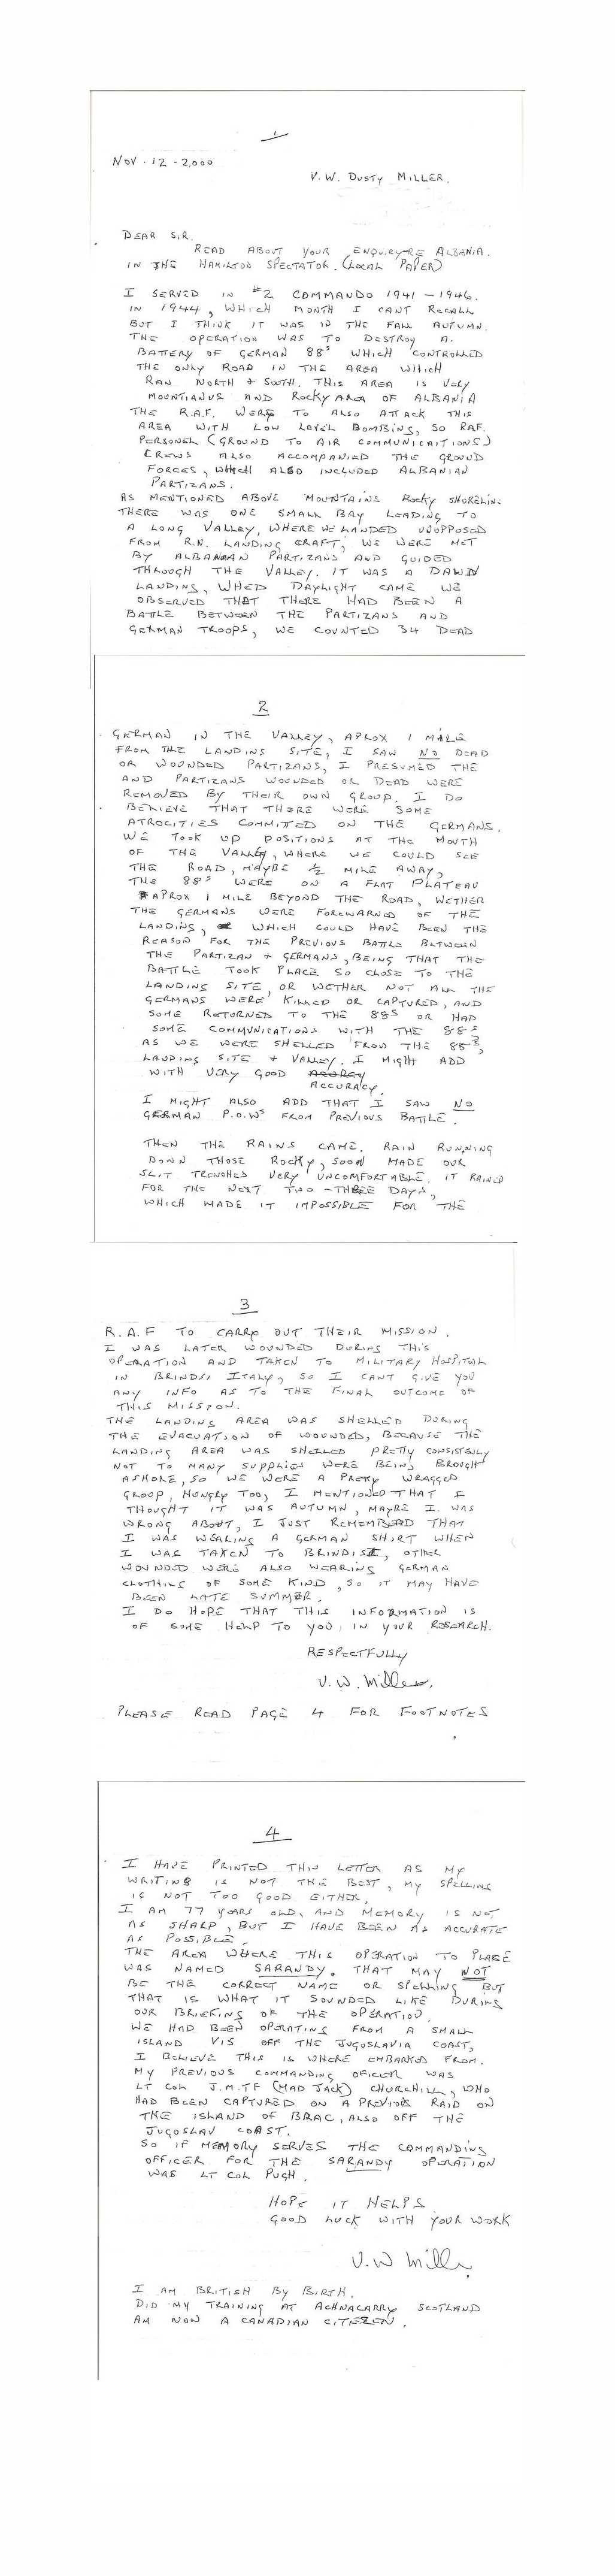 1
NOV. 12 - 2,000
V. W. DUSTY MILLER.
DEAR SIR,
READ ABOUT YOUR ENQUIRY RE ALBANIA.
IN THE HAMILTON SPECTATOR. (LOCAL PAPER)
I SERVED IN #2 COMMANDO 1941 - 1946.
IN 1944, WHICH MONTH I CANT RECALL
BUT I THINK IT WAS IN THE FALL AUTUMN.
THE OPERATION WAS TO DESTROY A.
BATTERY OF GERMAN 88S WHICH CONTROLLED
THE ONLY ROAD IN THE AREA WHICH
RAN NORTH + SOUTH. THIS AREA IS VERY
MOUNTIANUS AND ROCKY AREA OF ALBANIA
THE R.A.F. WERE TO ALSO ATTACK THIS
AREA WITH LOW LEVEL BOMBING, SO RAF.
PERSONEL (GROUND TO AIR COMMUNICAITIONS)
CREWS ALSO ACCOMPANIED THE GROUND
FORCES, WHICH ALSO INCLUDED ALBANIAN
PARTIZANS.
AS MENTIONED ABOVE MOUNTAINS ROCKY SHORELINE
THERE WAS ONE SMALL BAY LEADING TO
A LONG VALLEY, WHERE WE LANDED UNOPPOSED
FROM R.N. LANDING CRAFT, WE WERE MET
BY ALBANIAN PARTIZANS AND GUIDED
THROUGH THE VALLEY. IT WAS A DAWN
LANDING, WHED DAYLIGHT CAME WE
OBSERVED THAT THERE HAD BEEN A
BATTLE BETWEEN THE PARTIZANS AND
GERMAN TROOPS, WE COUNTED 34 DEAD
2
GERMAN IN THE VALLEY, APROX 1 MILE
FROM THE LANDING SITE, I SAW NO DEAD
OR WOUNDED PARTIZANS, I PRESUMED THE
AND PARTIZANS WOUNDED OR DEAD WERE
REMOVED BY THEIR OWN GROUP. I DO
BELIEVE THAT THERE WERE SOME
ATROCITIES COMMITTED ON THE GERMANS.
WE TOOK UP POSITIONS AT THE MOUTH
OF THE VALLEY, WHERE WE COULD SEE
THE ROAD, MAYBE 1/2 MILE AWAY,
THE 88S WERE ON A FLAT PLATEAU
APROX 1 MILE BEYOND THE ROAD, WETHER
THE GERMANS WERE FOREWARNED OF THE
LANDING, WHICH COULD HAVE BEEN THE
REASON FOR THE PREVIOUS BATTLE BETWEEN
THE PARTIZAN + GERMANS, BEING THAT THE
BATTLE TOOK PLACE SO CLOSE TO THE
LANDING SITE, OR WETHER NOT ALL THE
GERMANS WERE KILLED OR CAPTURED, AND
SOME RETURNED TO THE 88S OR HAD
SOME COMMUNICATIONS WITH THE 88S
AS WE WERE SHELLED FROM THE 88S,
LANDING SITE + VALLEY. I MIGHT ADD
WITH VERY GOOD
ACCURACY.
I MIGHT ALSO ADD THAT I SAW NO
GERMAN P.O.WS FROM PREVIOUS BATTLE.
THEN THE RAINS CAME. RAIN RUNNING
DOWN THOSE ROCKY, SOON MADE OUR
SLIT TRENCHES VERY UNCOMFORTABLE. IT RAINED
FOR THE NEXT TWO - THREE DAYS,
WHICH MADE IT IMPOSSIBLE FOR THE
3
R.A.F TO CARRY OUT THEIR MISSION.
I WAS LATER WOUNDED DURING THIS
OPERATION AND TAKEN TO MILITARY HOSPITAL
IN BRINDSI ITALY, SO I CANT GIVE YOU
ANY INFO AS TO THE FINAL OUTCOME OF
THIS MISSION.
THE LANDING AREA WAS SHELLED DURING
THE EVACUATION OF WOUNDED, BECAUSE THE
LANDING AREA WAS SHELLED PRETTY CONSISTENLY
NOT TO MANY SUPPLIES WERE BEING BROUGH
ASHORE, SO WE WERE A PRETY WRAGGED
GROUP, HUNGRY TOO, I MENTIONED THAT I
THOUGHT IT WAS AUTUMN, MAYBE I WAS
WRONG ABOUT, I JUST REMEMBERED THAT
I WAS WEARING A GERMAN SHIRT WHEN
I WAS TAKEN TO BRINDISI, OTHER
WOUNDED WERE ALSO WEARING GERMAN
CLOTHING OF SOME KIND, SO IT MAY HAVE
BEEN LATE SUMMER.
I DO HOPE THAT THIS INFORMATION IS
OF SOME HELP TO YOU, IN YOUR RESEARCH.
RESPECTFULLY
V. W. Miller.
PLEASE READ PAGE 4 FOR FOOTNOTES
4
I HAVE PRINTED THIS LETTER AS MY
WRITING IS NOT THE BEST, MY SPELLING
IS NOT TOO GOOD EITHER,
I AM 77 YEARS OLD, AND MEMORY IS NOT
AS SHARP, BUT I HAVE BEEN AS ACCURATE
AS POSSIBLE.
THE AREA WHERE THIS OPERATION TO PLACE
WAS NAMED SARANDY. THAT MAY NOT
BE THE CORRECT NAME OR SPELLING BUT
THAT IS WHAT IT SOUNDED LIKE DURING
OUR BRIEFING OF THE OPERATION.
WE HAD BEEN OPERATING FROM A SMALL
ISLAND VIS OFF THE JUGOSLAVIA COAST,
I BELIEVE THIS IS WHERE EMBARKED FROM.
MY PREVIOUS COMMANDING OFICER WAS
LT COL J.M.TF (MAD JACK) CHURCHILL, WHO
HAD BEEN CAPTURED ON A PREVIOUS RAID ON
THE ISLAND OF BRAC, ALSO OFF THE
JUGOSLAV COAST.
SO IF MEMORY SERVES THE COMMANDING
OFFICER FOR THE SARANDY OPERATION
WAS LT COL PUGH.
HOPE IT HELPS
GOOD LUCK WITH YOUR WORK
V. W Miller
I AM BRITISH BY BIRTH.
DID MY TRAINING AT ACHNACARRY SCOTLAND
AM NOW A CANADIAN CITEZEN.